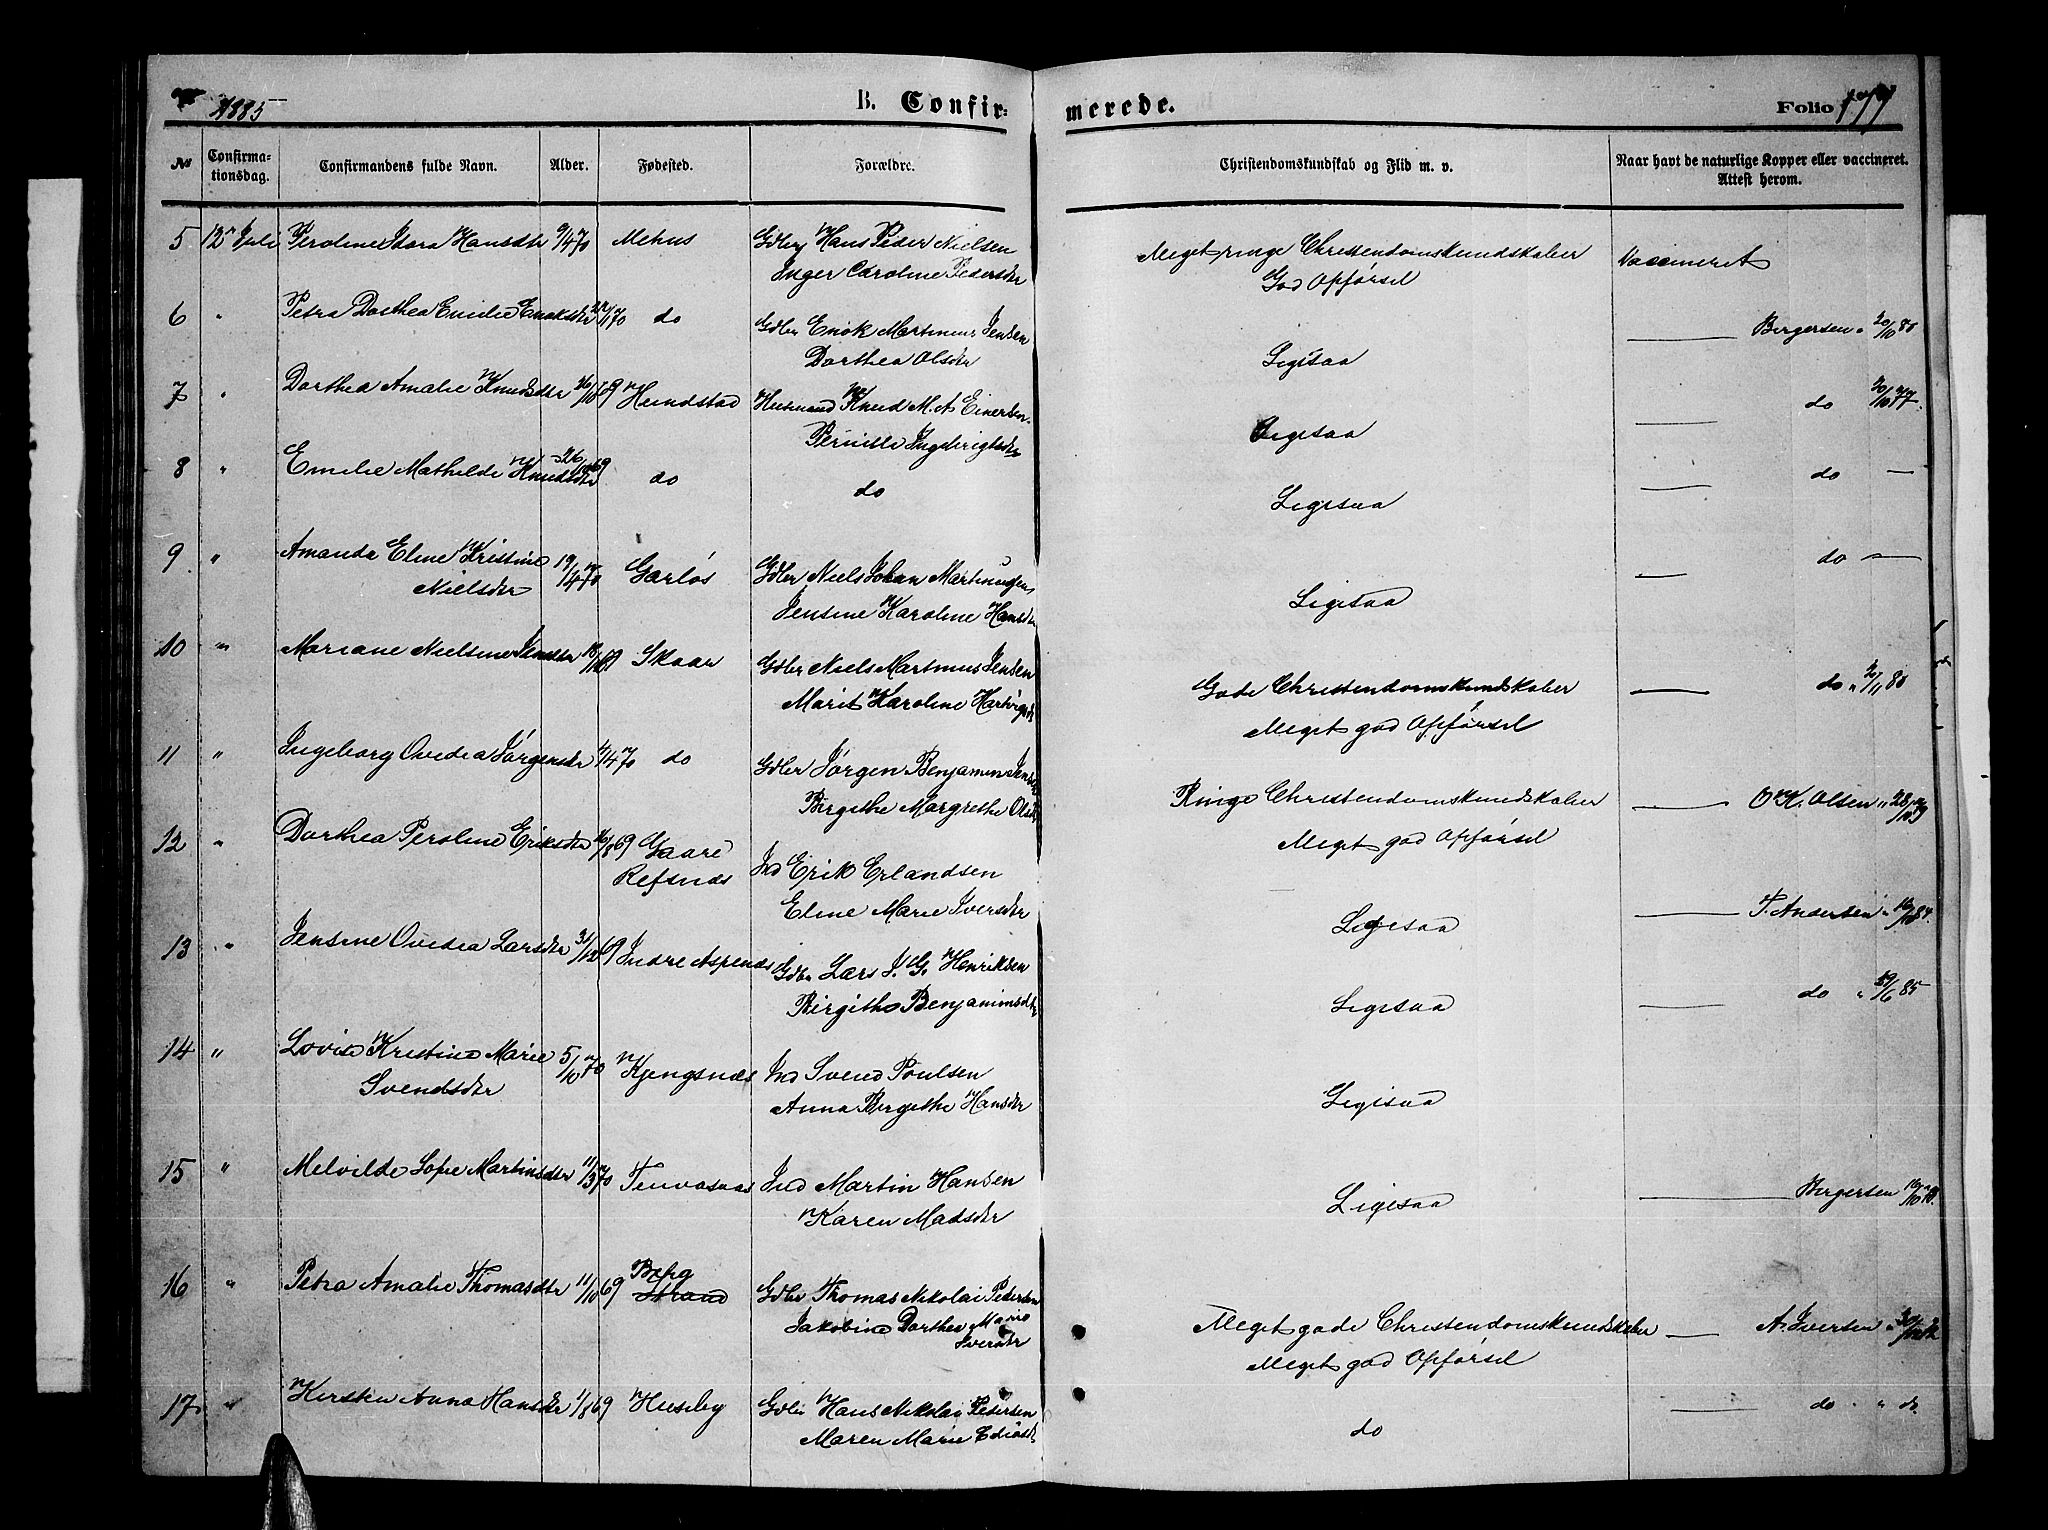 1885
B. Confir=
merede.
Folio 177
No
Confirma-
tionsdag.
Confirmandens fulde Navn.
Alder.
Fødested.
Forældre.
Christendomskundskab og Flid m. v.
Naar havt de naturlige Kopper eller vaccineret.
Attest herom.
5 12 Juli Peroline Idara Hansdtr 9/4 70 Mehus Gdbr Hans Peder Nielsen
Inger Caroline Pedersdtr
Meget ringe Christendomskundskaber Vaccineret
God Opførsel
6 " Petra Dorthea Emilie Enoksdtr 70 do Gdbr Enok Martinus Jensen
Dorthea Olsdtr
Ligesaa Bergersen " 20/10 80
7 " Dorthea Amalie Knudsdtr 26/10 69 Hundstad Husmand Knud M. A. Einersen
Pernille Ingebrigtsdtr
Ligesaa do 20/10 77
8 " Emilie Mathilde Knudsdtr 26/10 69 do do
Ligesaa do —
9 " Amanda Eline Kristine 19/4 70 Garløs Gdbr Niels Johan Martinussen
Nielsdtr Jensine Karoline Hansdtr
Ligesaa do —
10 " Mariane Nielsine Jensdtr 69 Skaar Gdbr Niels Martinus Jensen
Marit Karoline Hartvigsdtr
Gode Christendomskundskaber do " 2/11 80
Meget god Opførsel
11 " Ingeborg Ovedia Jørgensdtr 4/4 70 do Gdbr Jørgen Benjamin Jensen
Birgithe Margrethe Olsdtr
Ringe Christendomskundskaber O. K. Olsen " 28/10
Meget god Opførsel
12 " Dorthea Peroline Eriksdtr 16/8 69 Gaare
Refsnæs Ind Erik Erlandsen
Eline Marie Iversdtr
Ligesaa T. Andersen " 84.
13 " Jensine Ovedia Larsdtr 31/12 69 Indre Aspenæs Gdbr Lars J. G. Henriksen
Birgithe Benjaminsdtr
Ligesaa do " 19/6 85
14 " Lovise Kristine Marie 5/10 70 Kjengsnæs Ind Svend Poulsen
Svendsdtr Anna Birgithe Hansdtr
Ligesaa
15 " Melvilde Sofie Martinsdtr 11/3 70 Tenvasnæs Ind Martin Hansen
Karen Madsdtr
Ligesaa Bergersen
16 " Petra Amalie Thomasdtr 11/10 69 Berg
Strand Gdbr Thomas Nikolai Pedersen
Jakobine Dorthea Marie
Iversdtr
Meget gode Christendomskundskaber A. Iversen
Meget god Opførsel
17 " Kirsten Anna Hansdtr 1/8 69 Huseby Gdbr Hans Nikolai Pedersen
Maren Marie
do do " do